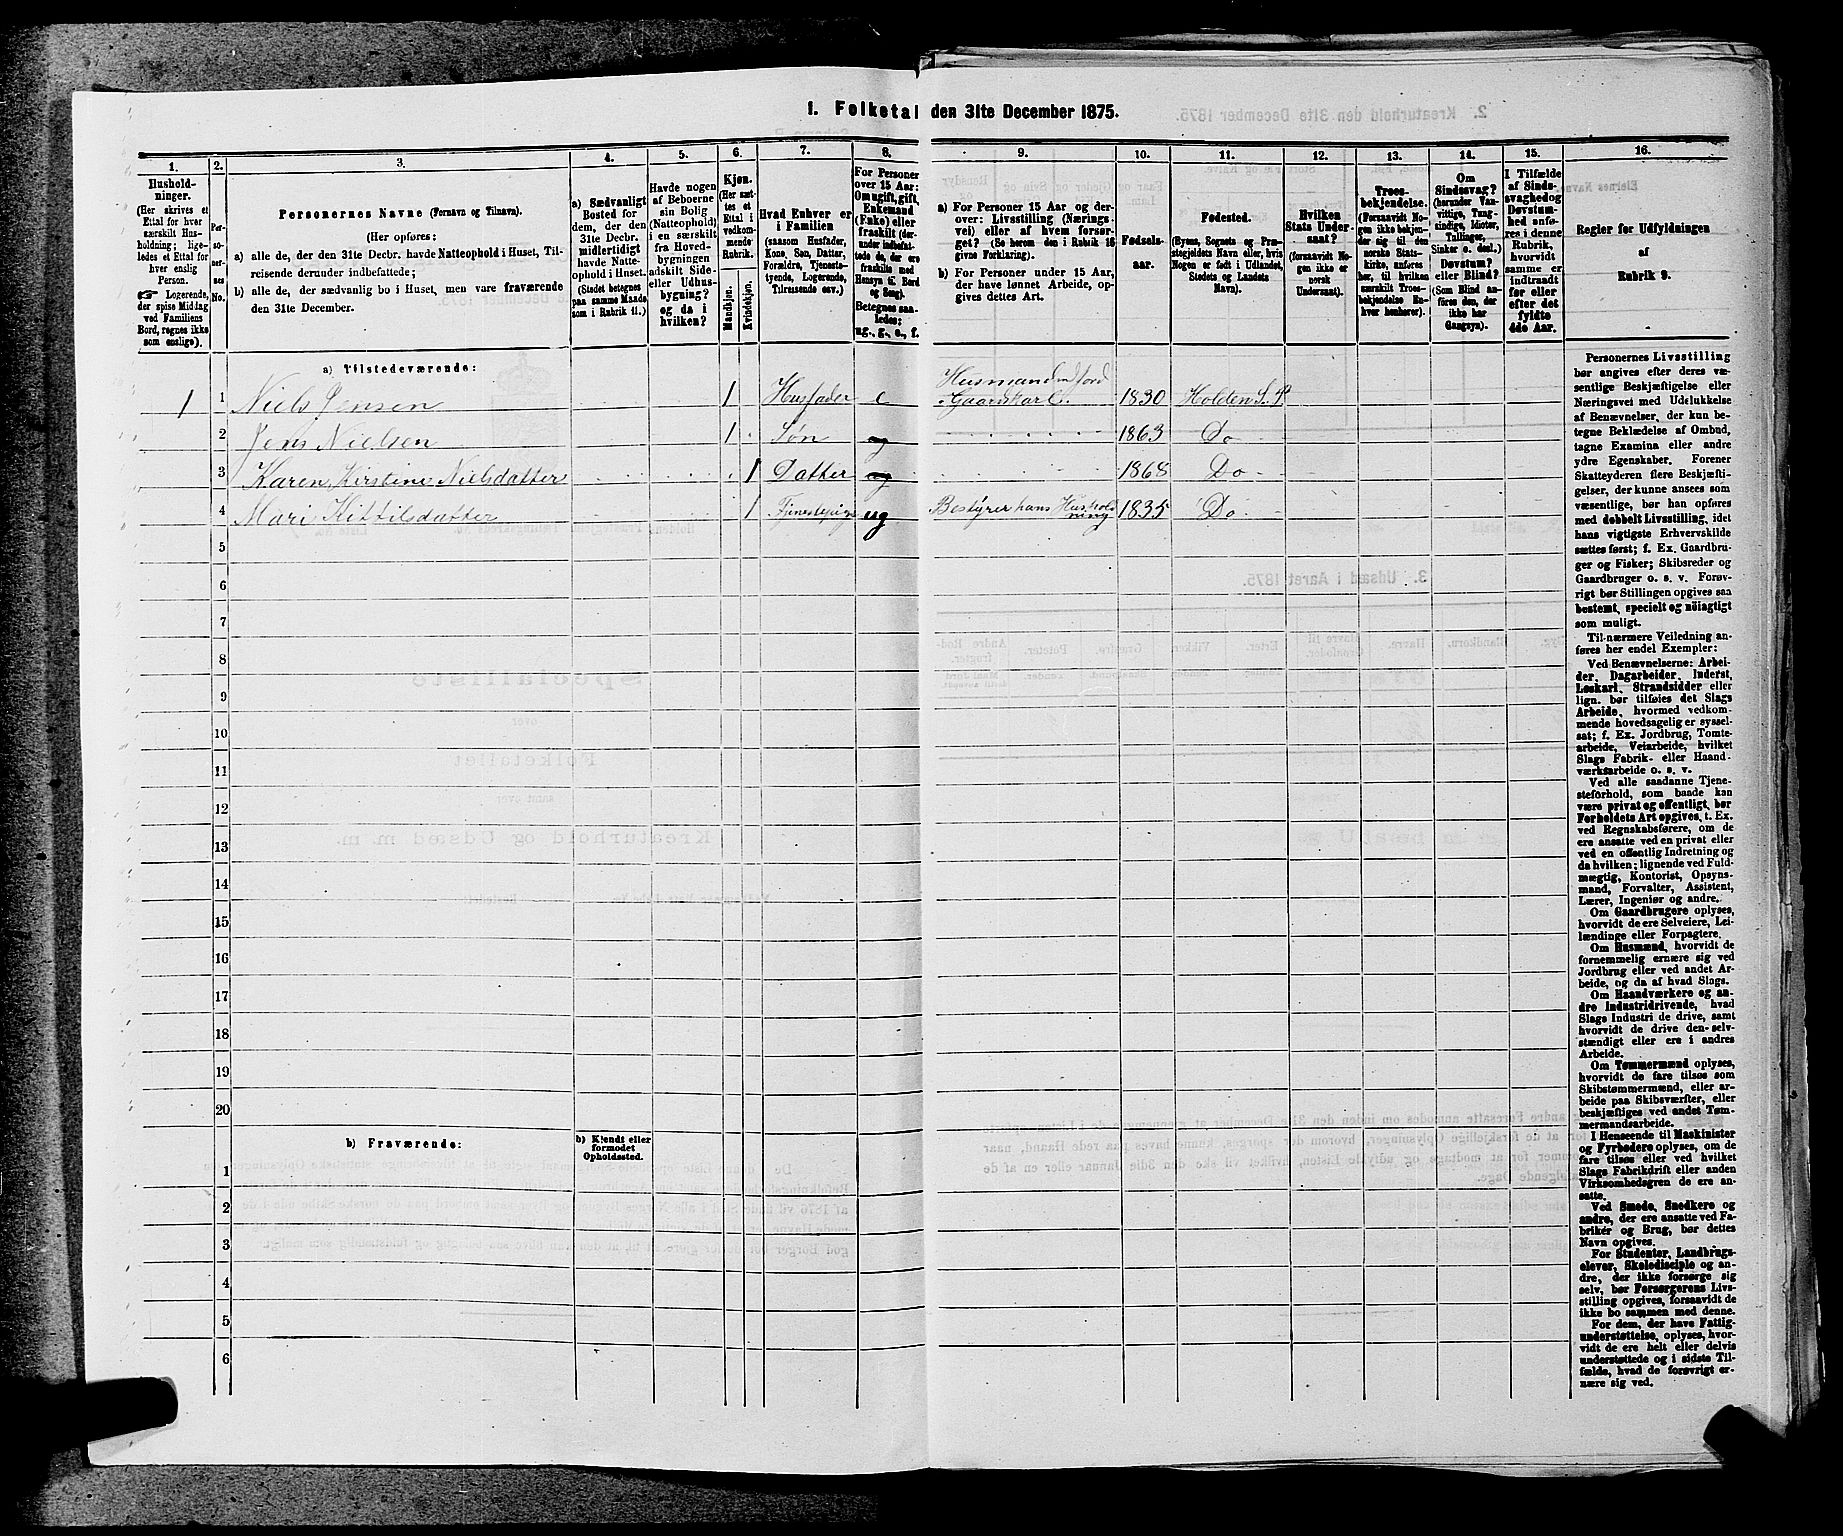 1. Folketal den 31te December 1875.
1.
2.
3.
4.
5.
6.
7.
8.
9.
10.
11.
12.
13.
14.
15.
16.
Hushold-
ninger.
(Her skrives et
Ettal for hver
særskilt Hus-
holdning; lige-
ledes et Ettal for
hver enslig
Person.
☞ Logerende,
der spise Middag
ved Familiens
Bord, regnes ikke
som enslige).
Per-
so-
ner-
nes
No.
Personernes Navne (Fornavn og Tilnavn).
(Her opføres:
a) alle de, der den 31te Decbr. havde Natteophold i Huset, Til-
reisende derunder indbefattede;
b) alle de, der sædvanlig bo i Huset, men vare fraværende
den 31te December.
a) Sædvanligt
Bosted for
dem, der den
31te Decbr.
midlertidigt
havde Natte-
ophold i Huset.
(Stedet betegnes
paa samme Maade
som i Rubrik 11.)
Havde nogen
af Beboerne
sin Bolig
(Natteophold)
i en særskilt
fra Hoved-
bygningen
adskilt Side-
eller Udhus-
bygning?
og da i
hvilken?
Kjøn.
(Her sæt-
tes et
Ettal i
vedkom-
mende
Rubrik.
Mandkjøn.
Kvindekjøn.
Hvad Enhver er
i Familien
(saasom Husfader,
Kone, Søn, Datter,
Forældre, Tjeneste-
tyende, Logerende,
Tilreisende osv.)
For Personer
over 15 Aar:
Om ugift, gift,
Enkemand
(Enke) eller
fraskilt (der-
under indbefat-
tede de, der ere
fraskilte med
Hensyn til Bord
og Seng).
Betegnes saa-
ledes:
ug., g., e., f.
a) For Personer 15 Aar og der-
over: Livsstilling (Nærings-
vei) eller af hvem forsør-
get? (Se herom den i Rubrik 16
givne Forklaring).
b) For Personer under 15 Aar,
der have lønnet Arbeide, op-
gives dettes Art.
Fødsels-
aar.
Fødested.
(Byens, Sognets og Præ-
stegjeldets Navn eller, hvis
Nogen er født i Udlandet,
Stedets og Landets
Navn).
Hvilken
Stats Under-
saat?
(forsaavidt No-
gen ikke er
norsk
Undersaat).
Troes-
bekjendelse.
(Forsaavidt No-
gen ikke bekjen-
der sig til den
norske Stats-
kirke, anføres
her, til hvilken
særskilt Troes-
bekjendelse En-
hver henhører).
Om
Sindssvag?
(herunder Van-
vittige, Tung-
sindige, Idioter,
Tullinger,
Sinker o. desl.)
Døvstum?
eller Blind?
(Som Blind an-
føres den, der
ikke har
Gangsyn).
I Tilfælde
af Sinds-
svaghed og
Døvstum-
hed anfø-
res i denne
Rubrik,
hvorvidt
samme er
indtraadt
før eller
efter det
fyldte
4de Aar.
Regler for Udfyldningen
af
Rubrik 9.
a) Tilstedeværende:
1 1 Niels Jensen 1 Husfader e Husmand m ford Gaardskarl. 1830 Holden S. P
2 Jens Nielsen 1 Søn ug 1863 Do
3 Karen Kirstine Nielsdatter 1 Datter ug 1868 Do
4 Mari Kittilsdatter 1 Tjenestepige ug Bestyrer hans Hushold ning 1835 Do
5
6
7
8
9
10
11
12
13
14
15
16
17
18
19
20
b) Fraværende:
b) Kjendt eller
formodet
Opholdssted.
1
2
3
4
5
6
Personernes Livsstilling
bør angives efter deres væ-
sentlige Beskjæftigelse eller
Næringsvei med Udelukkelse
af Benævnelser, der kun be-
tegne Beklædelse af Ombud,
tagne Examina eller andre
ydre Egenskaber. Forener
Skatteyderen flere Beskjæfti-
gelser, der kunne ansees som
væsentlige, bør han opføres
med dobbelt Livsstilling, idet
hans vigtigste Erhvervskilde
sættes først; f. Ex. Gaardbru-
ger og Fisker; Skibsreder og
Gaardbruger o. s. v. Forøv-
rigt bør Stillingen opgives saa
bestemt, specielt og nöiagtigt
som muligt.
Til nærmere Veiledning an-
føres her endel Exempler:
Ved Benævnelserne: Arbei-
der, Dagarbeider, Inderst,
Løskarl, Strandsidder eller
lign. bør tilføies det Slags
Arbeide, hvormed vedkom-
mende hovedsagelig er syssel-
sat; f. Ex. Jordbrug, Tomte-
arbeide, Veiarbeide, hvilket
Slags Fabrik- eller Haand-
værksarbeide o. s. v.
Ved alle saadanne Tjene-
steforhold, som baade kan
være privat og offentligt, bør
Forholdets Art opgives, t. Ex.
ved Regnskabsførere, om de
ere ansatte ved en privat eller
ved en offentlig Indretning og
da hvilken; lignende ved Fuld-
mægtig, Kontorist, Opsyns-
mand, Forvalter, Assistent,
Lærer, Ingeniør og andre.
Om Gaardbrugere oplyses,
hvorvidt de ere Selveiere, Lei-
lændinge eller Forpagtere.
Om Husmænd, hvorvidt de
fornemmelig ernære sig ved
Jordbrug eller ved andet Ar-
beide, og da af hvad Slags.
Om Haandværkere og an-
dre Industridrivende, hvad
Slags Industri de drive, samt
hvorvidt de drive den selv-
stændigt eller ere i andres
Arbeide.
Om Tømmermænd oplyses,
hvorvidt de fare tilsøs som
Skibstømmermænd, eller ar-
beide paa Skibsværfter, eller
beskjæftiges ved andet Tøm-
mermandsarbeide.
I Henseende til Maskinister
og Fyrbødere oplyses, om de
fare tilsøs eller ved hvilket
Slags Fabrikdrift eller anden
Virksomhedsgren de ere an-
satte.
Ved Smede, Snedkere og
andre, der ere ansatte ved Fa-
briker og Brug, bør dettes
Navn opgives.
For Studenter, Landbrugs-
elever, Skoledisciple og an-
dre, der ikke forsørge sig
selv, bør Forsørgerens Livs-
stilling opgives, forsaavidt de
ikke bo sammen med denne.
For dem, der have Fattig-
understøttelse, oplyses, hvor-
vidt de ere helt eller delvis
understøttede og i sidste Til-
fælde, hvad de forøvrigt er-
nære sig ved.